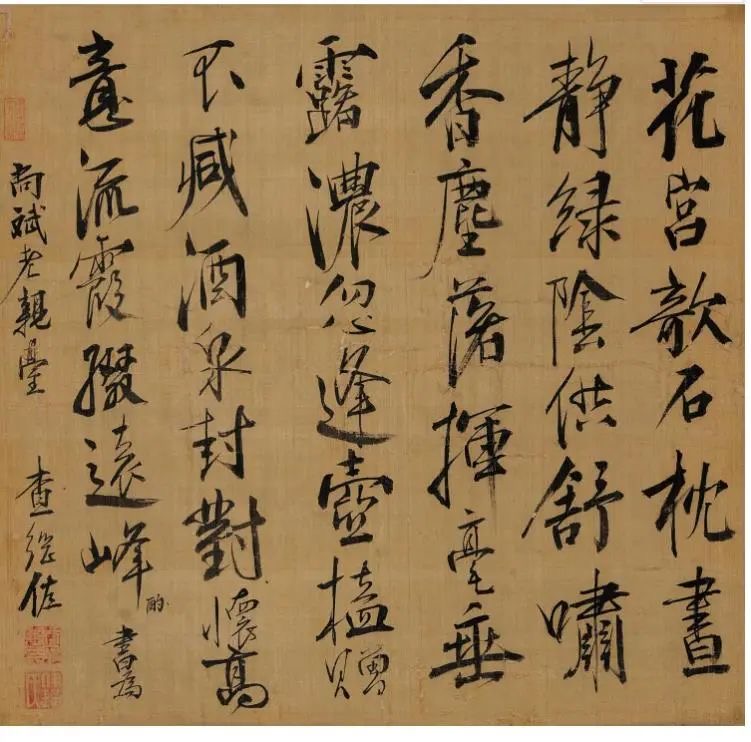 花宮欹石枕晝
静緑陰供舒嘯
香塵落揮毫垂
露濃忽逢壺榼贈
不減酒泉封對懷高
意流霞綴遠峰 酌 書為
尚斌老親臺 查繼佐